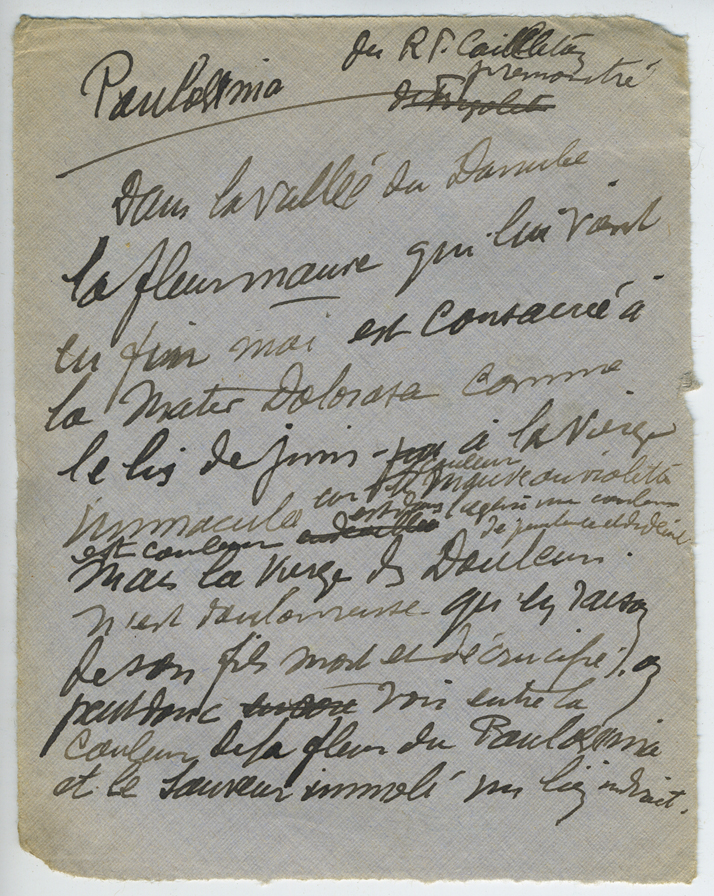 Paulownia
du R P. Cailleteau
premontré
Dans la vallée du Danube
la fleur mauve qui lui vient
en fin mai est consacrée à
la Mater Dolorosa comme
le lis de juin à la Vierge
immaculée car
couleur mauve ou violette
est dans l'église une couleur
de pénitence et de deuil
est couleur
mais la Vierge des Douleurs
n'est douloureuse qu'en raison
de son fils mort et décrucifié). on
peut donc encore voir entre la
couleur de la fleur du Paulownia
et le Sauveur immolé un lien indirect.